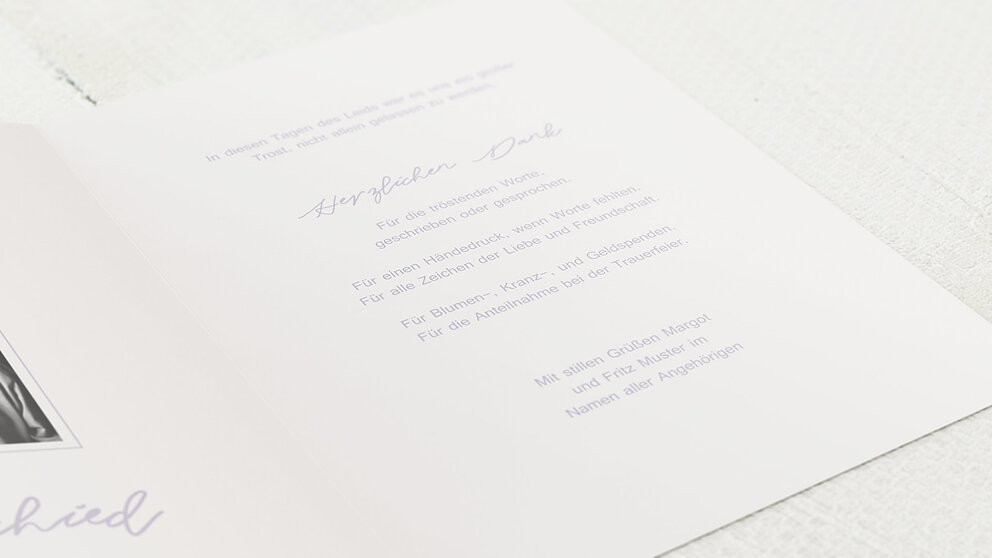 In diesen Tagen des Leids war es uns ein großer
Trost, nicht allein gelassen zu werden.
Herzlichen Dank
Für die tröstenden Worte,
geschrieben oder gesprochen.
Für einen Händedruck, wenn Worte fehlten.
Für alle Zeichen der Liebe und Freundschaft.
Für Blumen-, Kranz-, und Geldspenden.
Für die Anteilnahme bei der Trauerfeier.
Mit stillen Grüßen Margot
und Fritz Muster im
Namen aller Angehörigen
hied